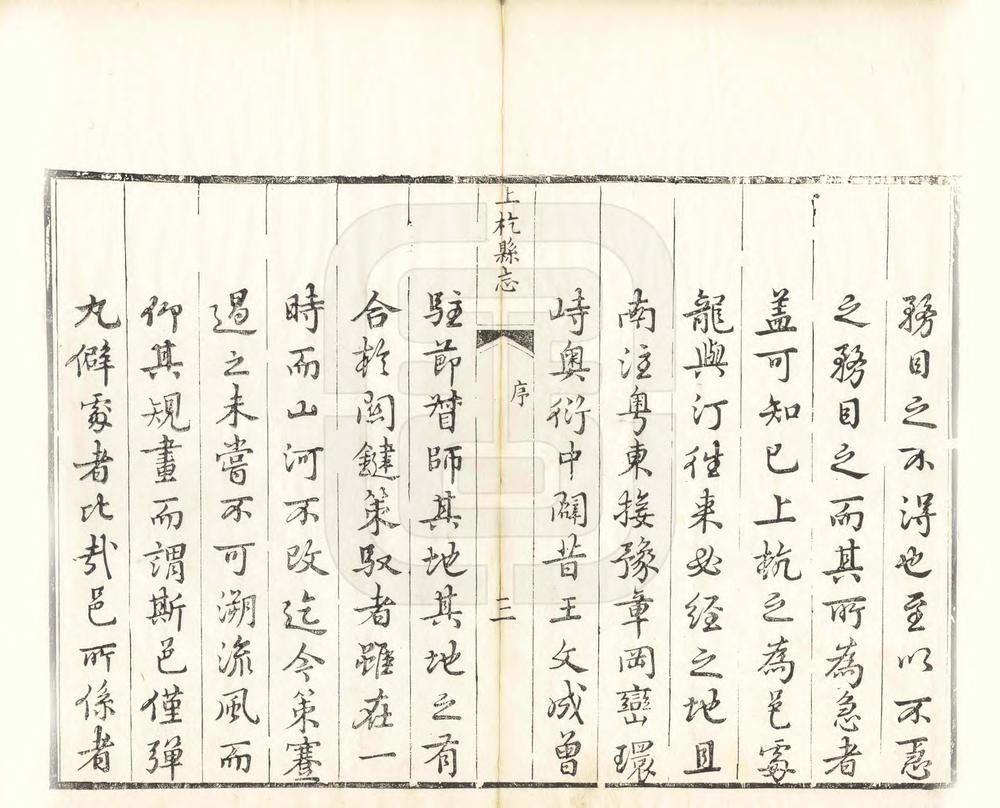 務目之不得也至以不急
之務目之而其所為急者
蓋可知已上杭之為邑處
龍與汀往來必經之地且
南注粵東接豫章岡巒環
峙奧衍中闢昔王文成曾
上杭縣志
序
三
駐節督師其地其地之有
合於關鍵策馭者雖在一
時而山河不改迄今策蹇
過之未嘗不可溯流風而
仰其規畫而謂斯邑僅彈
丸僻處者比哉邑所係者